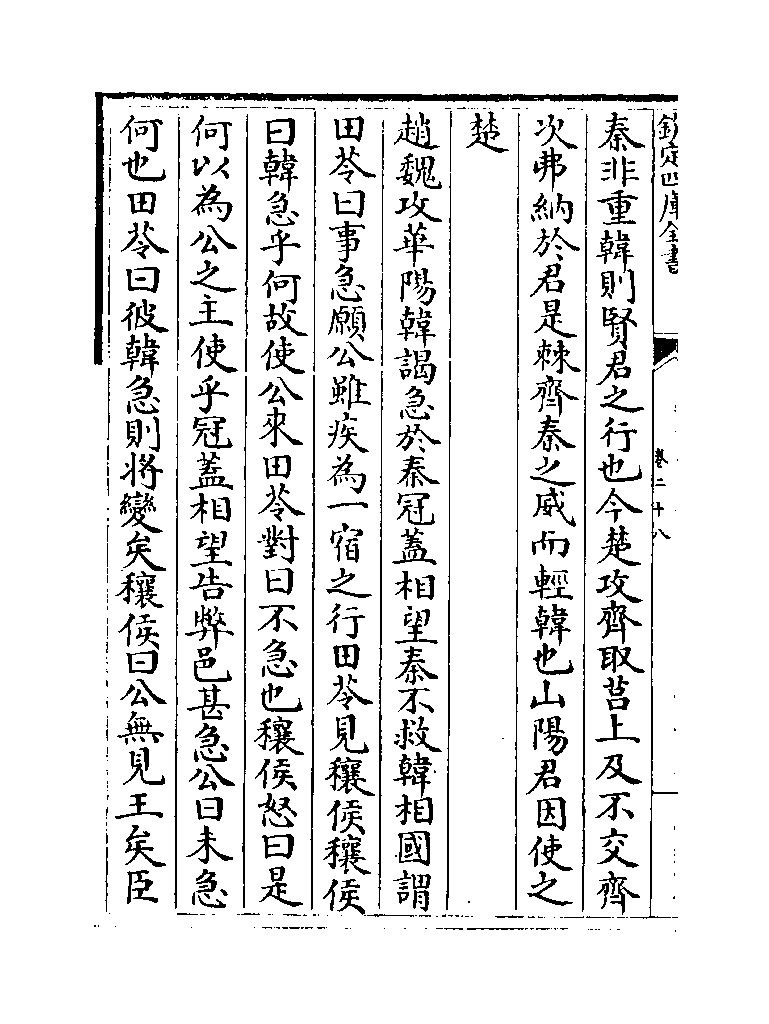 欽定四庫全書
卷二十八
秦非重韓則賢君之行也今楚攻齊取莒上及不交齊
次弗納於君是棘齊秦之威而輕韓也山陽君因使之
楚
趙魏攻華陽韓謁急於秦冠蓋相望秦不救韓相國謂
田苓曰事急願公雖疾為一宿之行田苓見穰侯穰侯
曰韓急乎何故使公來田苓對曰不急也穰侯怒曰是
何以為公之主使乎冠蓋相望告弊邑甚急公曰未急
何也田苓曰彼韓急則將變矣穰侯曰公無見王矣臣